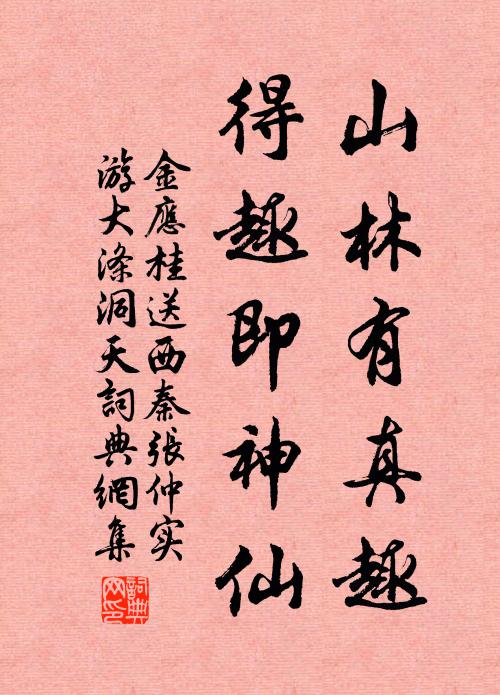 山林有真趣
得趣即神仙
金應桂送西秦張仲实
游大滌洞天詞典網集
詞典网印